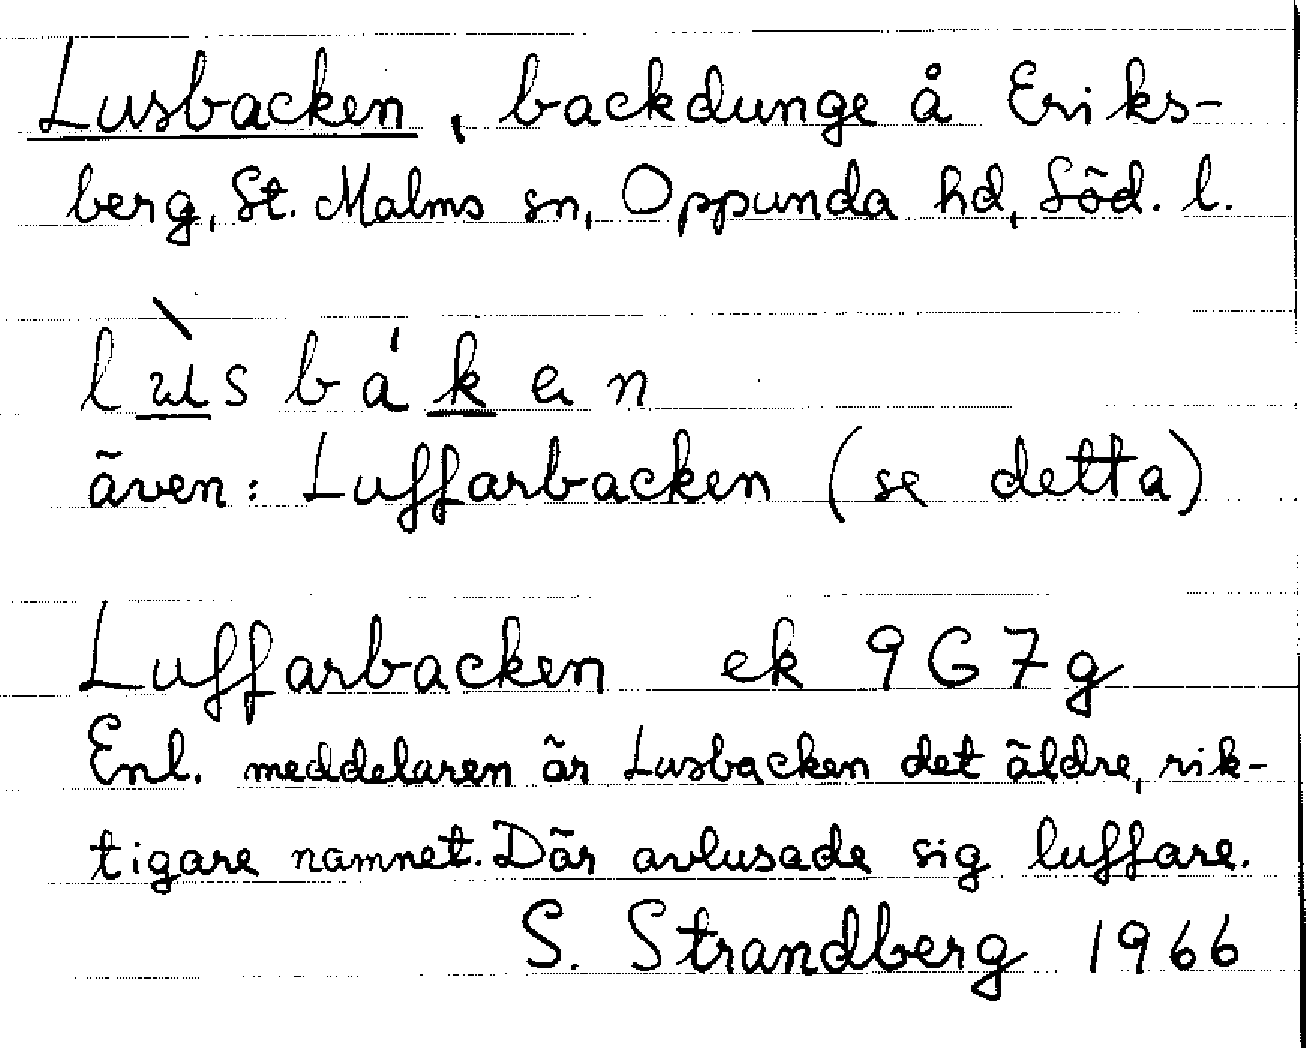 Lusbacken, backdunge å Eriks-
berg, St. Malms sn, Oppunda hd, Söd. l.
lùsbáken
även: Luffarbacken (se detta)
Luffarbacken ek 9G7g
Enl. meddelaren är Lusbacken det äldre, rik-
tigare namnet. Där avlusade sig luffare.
S. Strandberg 1966